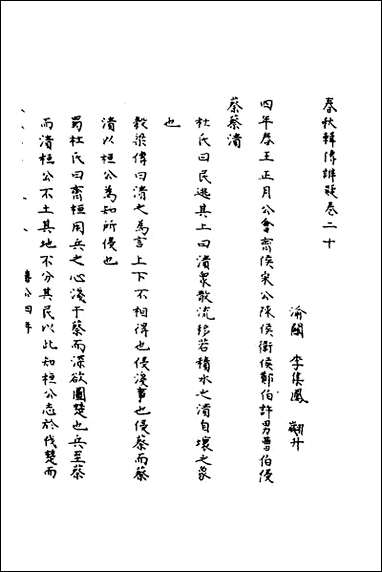 春秋輯傳辨疑卷二十
渝關 李集鳳 翽升
四年春王正月公會齊侯宋公陳侯衛侯鄭伯許男曹伯侵
蔡蔡潰
杜氏曰民逃其上曰潰衆散流移若積水之潰自壞之象
也
穀梁傳曰潰之為言上下不相得也侵淺事也侵蔡而蔡
潰以桓公為知所侵也
蜀杜氏曰齊桓用兵之心淺于蔡而深欲圖楚也兵至蔡
而潰桓公不土其地不分其民以此知桓公志於伐楚而
僖公四年